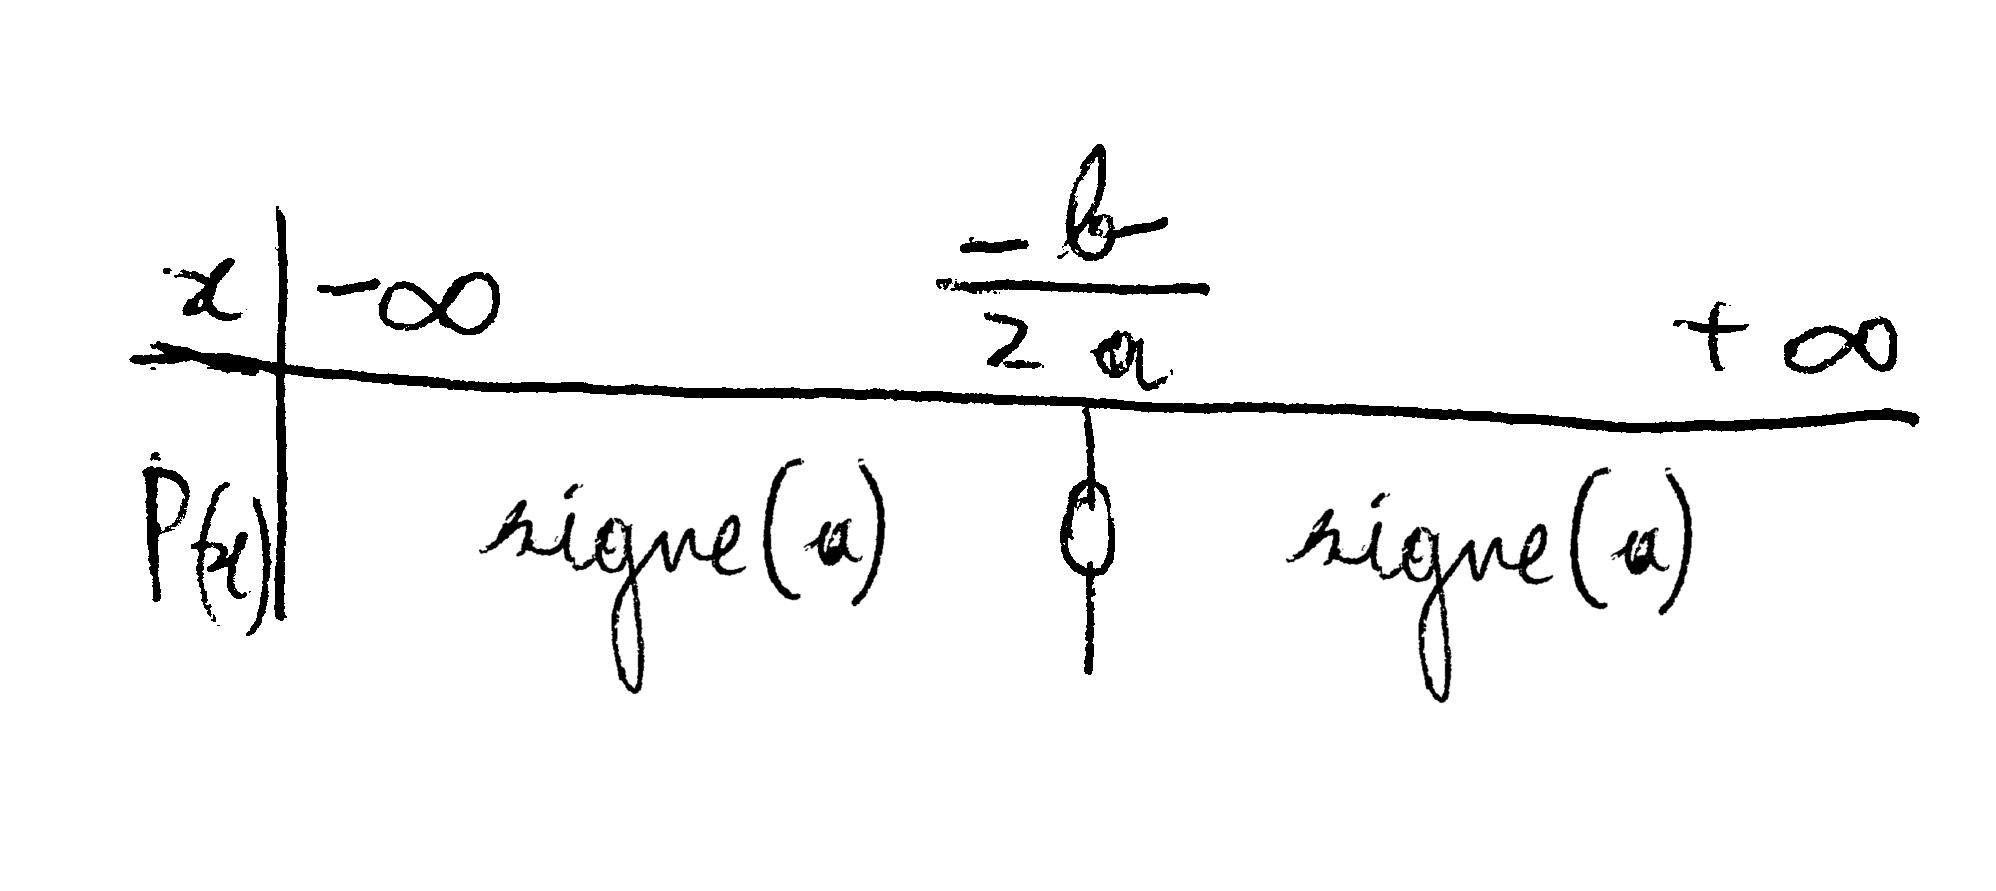 x | -∞ -b/2a +∞
P(x) | signe(a) 0 signe(a)